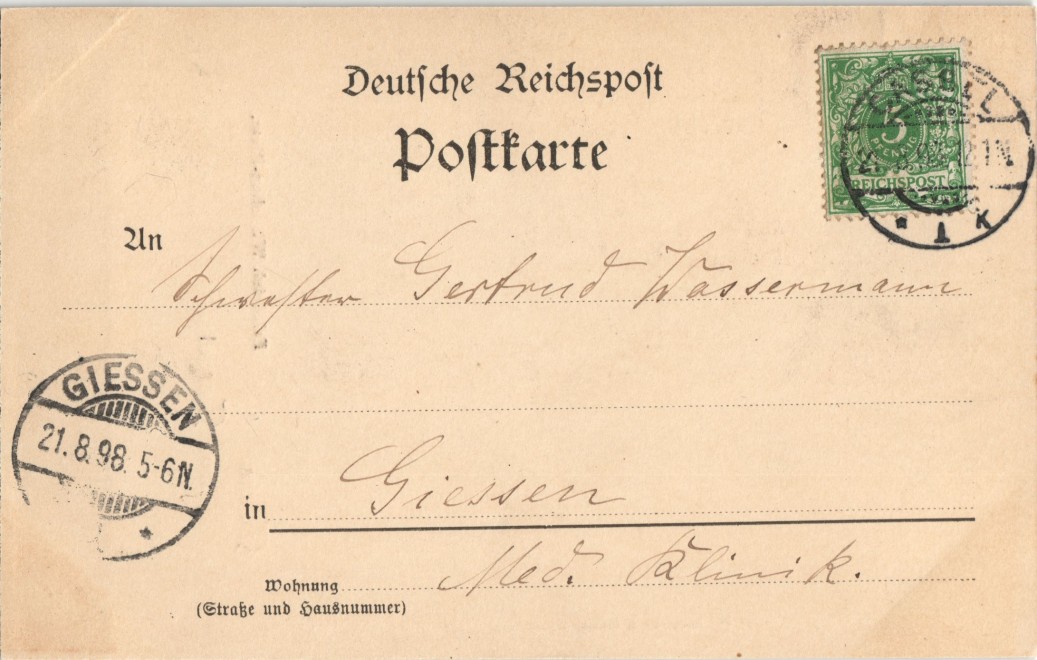 Deutsche Reichspost
Postkarte
5
PFENNIG
REICHSPOST
1 K
An
Schwester Gertrud Wassermann
GIESSEN
21.8.98. 5-6N.
*
in Giessen
Med. Klinik.
Wohnung
(Straße und Hausnummer)